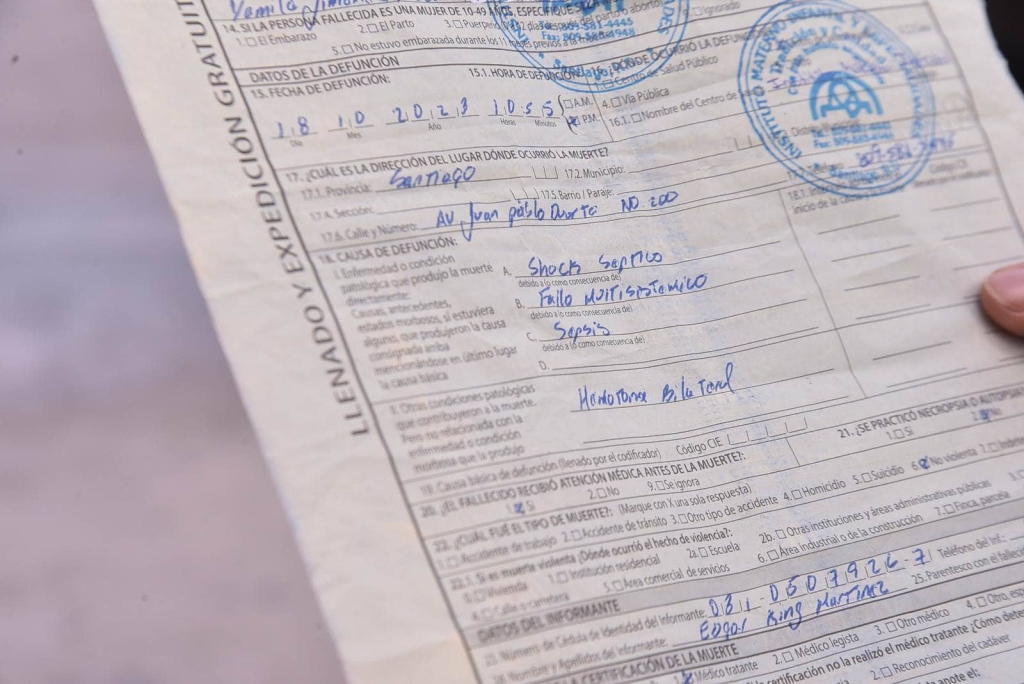 LLENADO Y EXPEDICIÓN GRATUIT
14. SI LA PERSONA FALLECIDA ES UNA MUJER DE 10-49 AÑOS, ESPECIFIQUE
1.□ El Embarazo 2.□ El Parto 3.□ Ignorado
5.□ No estuvo embarazada durante los 11 meses previos a la
809-581-4445
Fax: 809-583-4948
Santiago,
DATOS DE LA DEFUNCIÓN
15. FECHA DE DEFUNCIÓN: 15.1. HORA DE DEFUNCIÓN: 16. ¿DÓNDE OCURRIÓ LA DEFUN
1.□ Centro de Salud Público
18 10 2023 10 55 □ A.M. P.M. 4.□ Vía Pública
Día Mes Año Horas Minutos 16.1.□ Nombre del Centro de
INSTITUTO MATERNO INFANTIL Y
Santiago, R.D.
17. ¿CUÁL ES LA DIRECCIÓN DEL LUGAR DÓNDE OCURRIÓ LA MUERTE?
17.1. Provincia: Santiago 17.2. Municipio:
17.4. Sección: 17.5. Barrio / Paraje:
17.6. Calle y Número: AV. Juan pablo Duarte NO. 200
18. CAUSA DE DEFUNCIÓN: 18.1.
inicio de la
I. Enfermedad o condición
patológica que produjo la muerte
directamente:
A. Shock Septico
debido a (o como consecuencia de)
Causas, antecedentes,
estados morbosos, si estuviera
alguno, que produjeron la causa
consignada arriba
mencionándose en último lugar
la causa básica
B. Fallo Multisistemico
debido a (o como consecuencia de)
C. Sepsis
debido a (o como consecuencia de)
D.
II. Otras condiciones patológicas
que contribuyeron a la muerte.
Pero no relacionada con la
enfermedad o condición
morbosa que la produjo
Bilateral
19. Causa básica de defunción (llenado por el codificador) Código CIE
20. ¿EL FALLECIDO RECIBIÓ ATENCIÓN MÉDICA ANTES DE LA MUERTE?:
1. Si 2.□ No 9.□ Se ignora
21. ¿SE PRACTICÓ NECROPSIA O AUTOPSIA
1.□ Si 2. No
22. ¿CUÁL FUÉ EL TIPO DE MUERTE?: (Marque con X una sola respuesta)
1.□ Accidente de trabajo 2.□ Accidente de tránsito 3.□ Otro tipo de accidente 4.□ Homicidio 5.□ Suicidio 6. No violenta 7.□
22.1. Si es muerte violenta ¿Dónde ocurrió el hecho de violencia?:
□ Vivienda 1.□ Institución residencial 2a□ Escuela 2b.□ Otras instituciones y áreas administrativas públicas
4.□ Calle o carretera 5.□ Área comercial de servicios 6.□ Área industrial o de la construcción 7.□ Finca, parcela
DATOS DEL INFORMANTE
23. Número de Cédula de Identidad del Informante: 031-0507926-7 Teléfono del Inf.:
24. Nombre y Apellidos del Informante: Edgar King Martinez 25. Parentesco con el falleci
LA CERTIFICACIÓN DE LA MUERTE
1. Médico tratante 2.□ Médico legista 3.□ Otro médico 4.□ Otro,
certificación no la realizó el médico tratante ¿Cómo deter
2.□ Reconocimiento del cadáver
anote el: